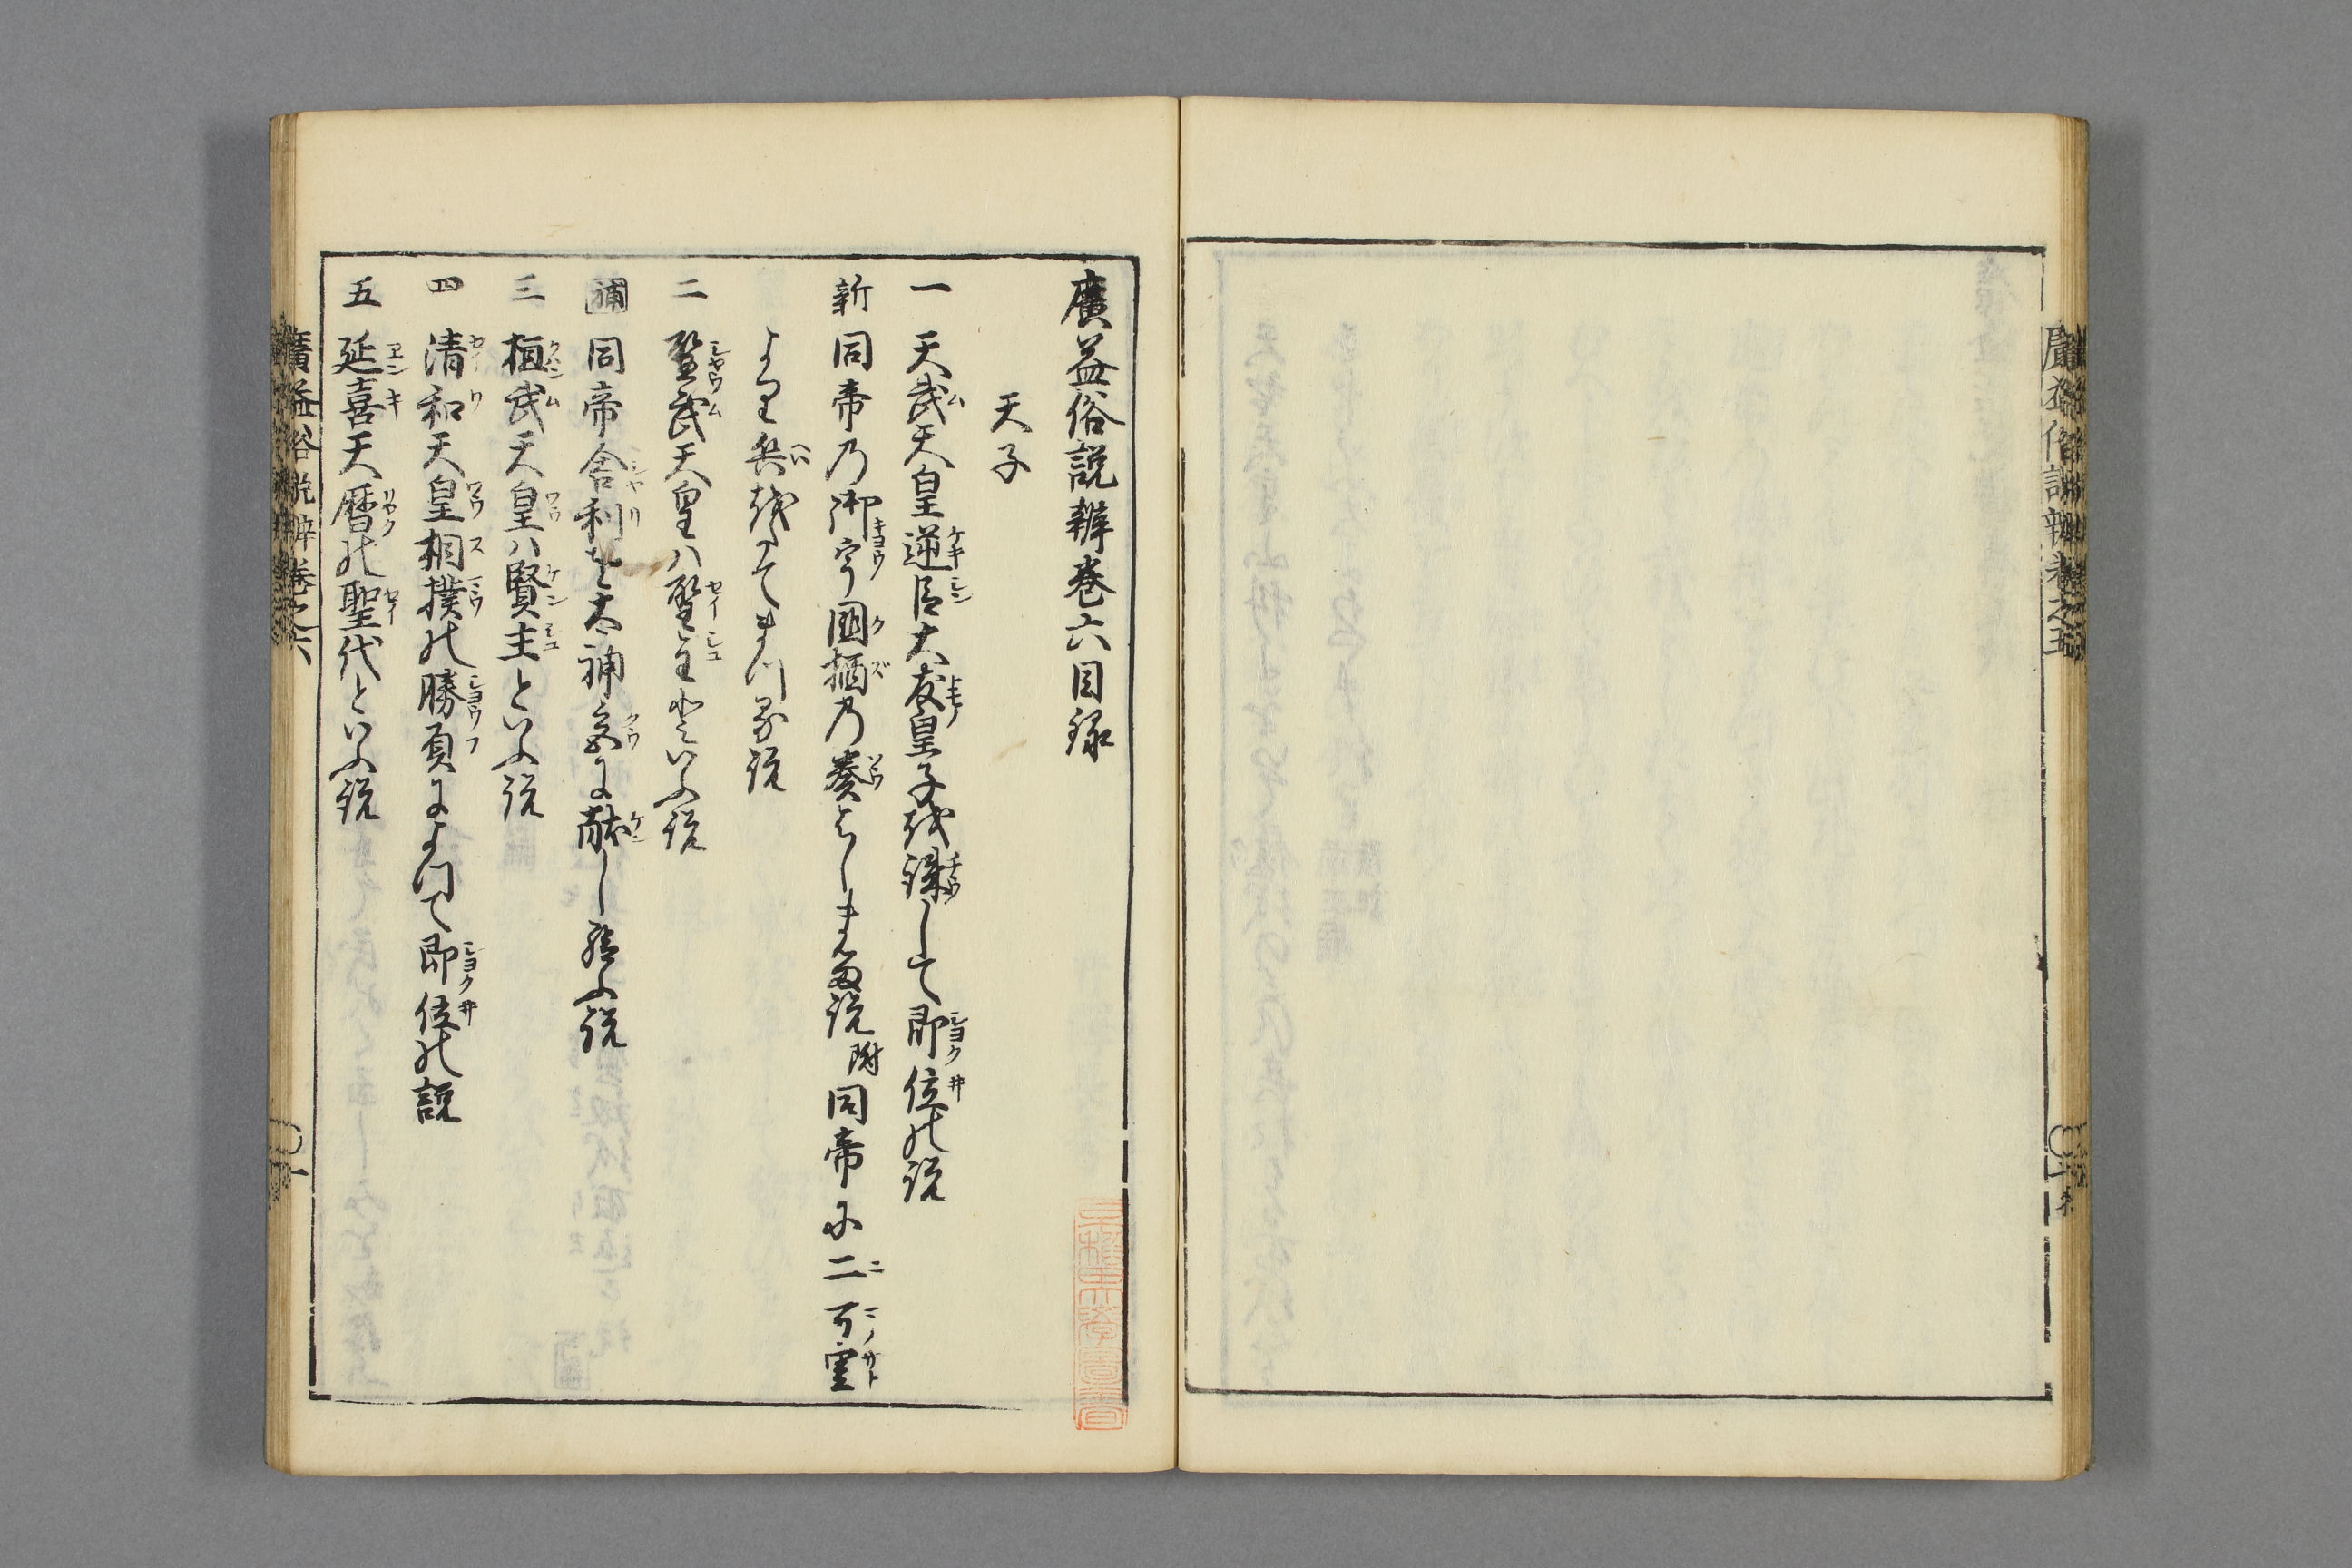 廣益俗説辨巻之五
廣益俗説辨巻六目録
天子
一 天武天皇逆臣大友皇子を誅して即位の説
新 同帝の御宇國栖の奏はしまる説 附 同帝に二万里
より兵をたてまつる説
二 聖武天皇ハ聖主といふ説
補 同帝舎利を太神宮に献し給ふ説
三 桓武天皇ハ賢主といふ説
四 清和天皇相撲の勝負によつて即位の説
五 延喜天暦の聖代といふ説
廣益俗説辨巻之六
一